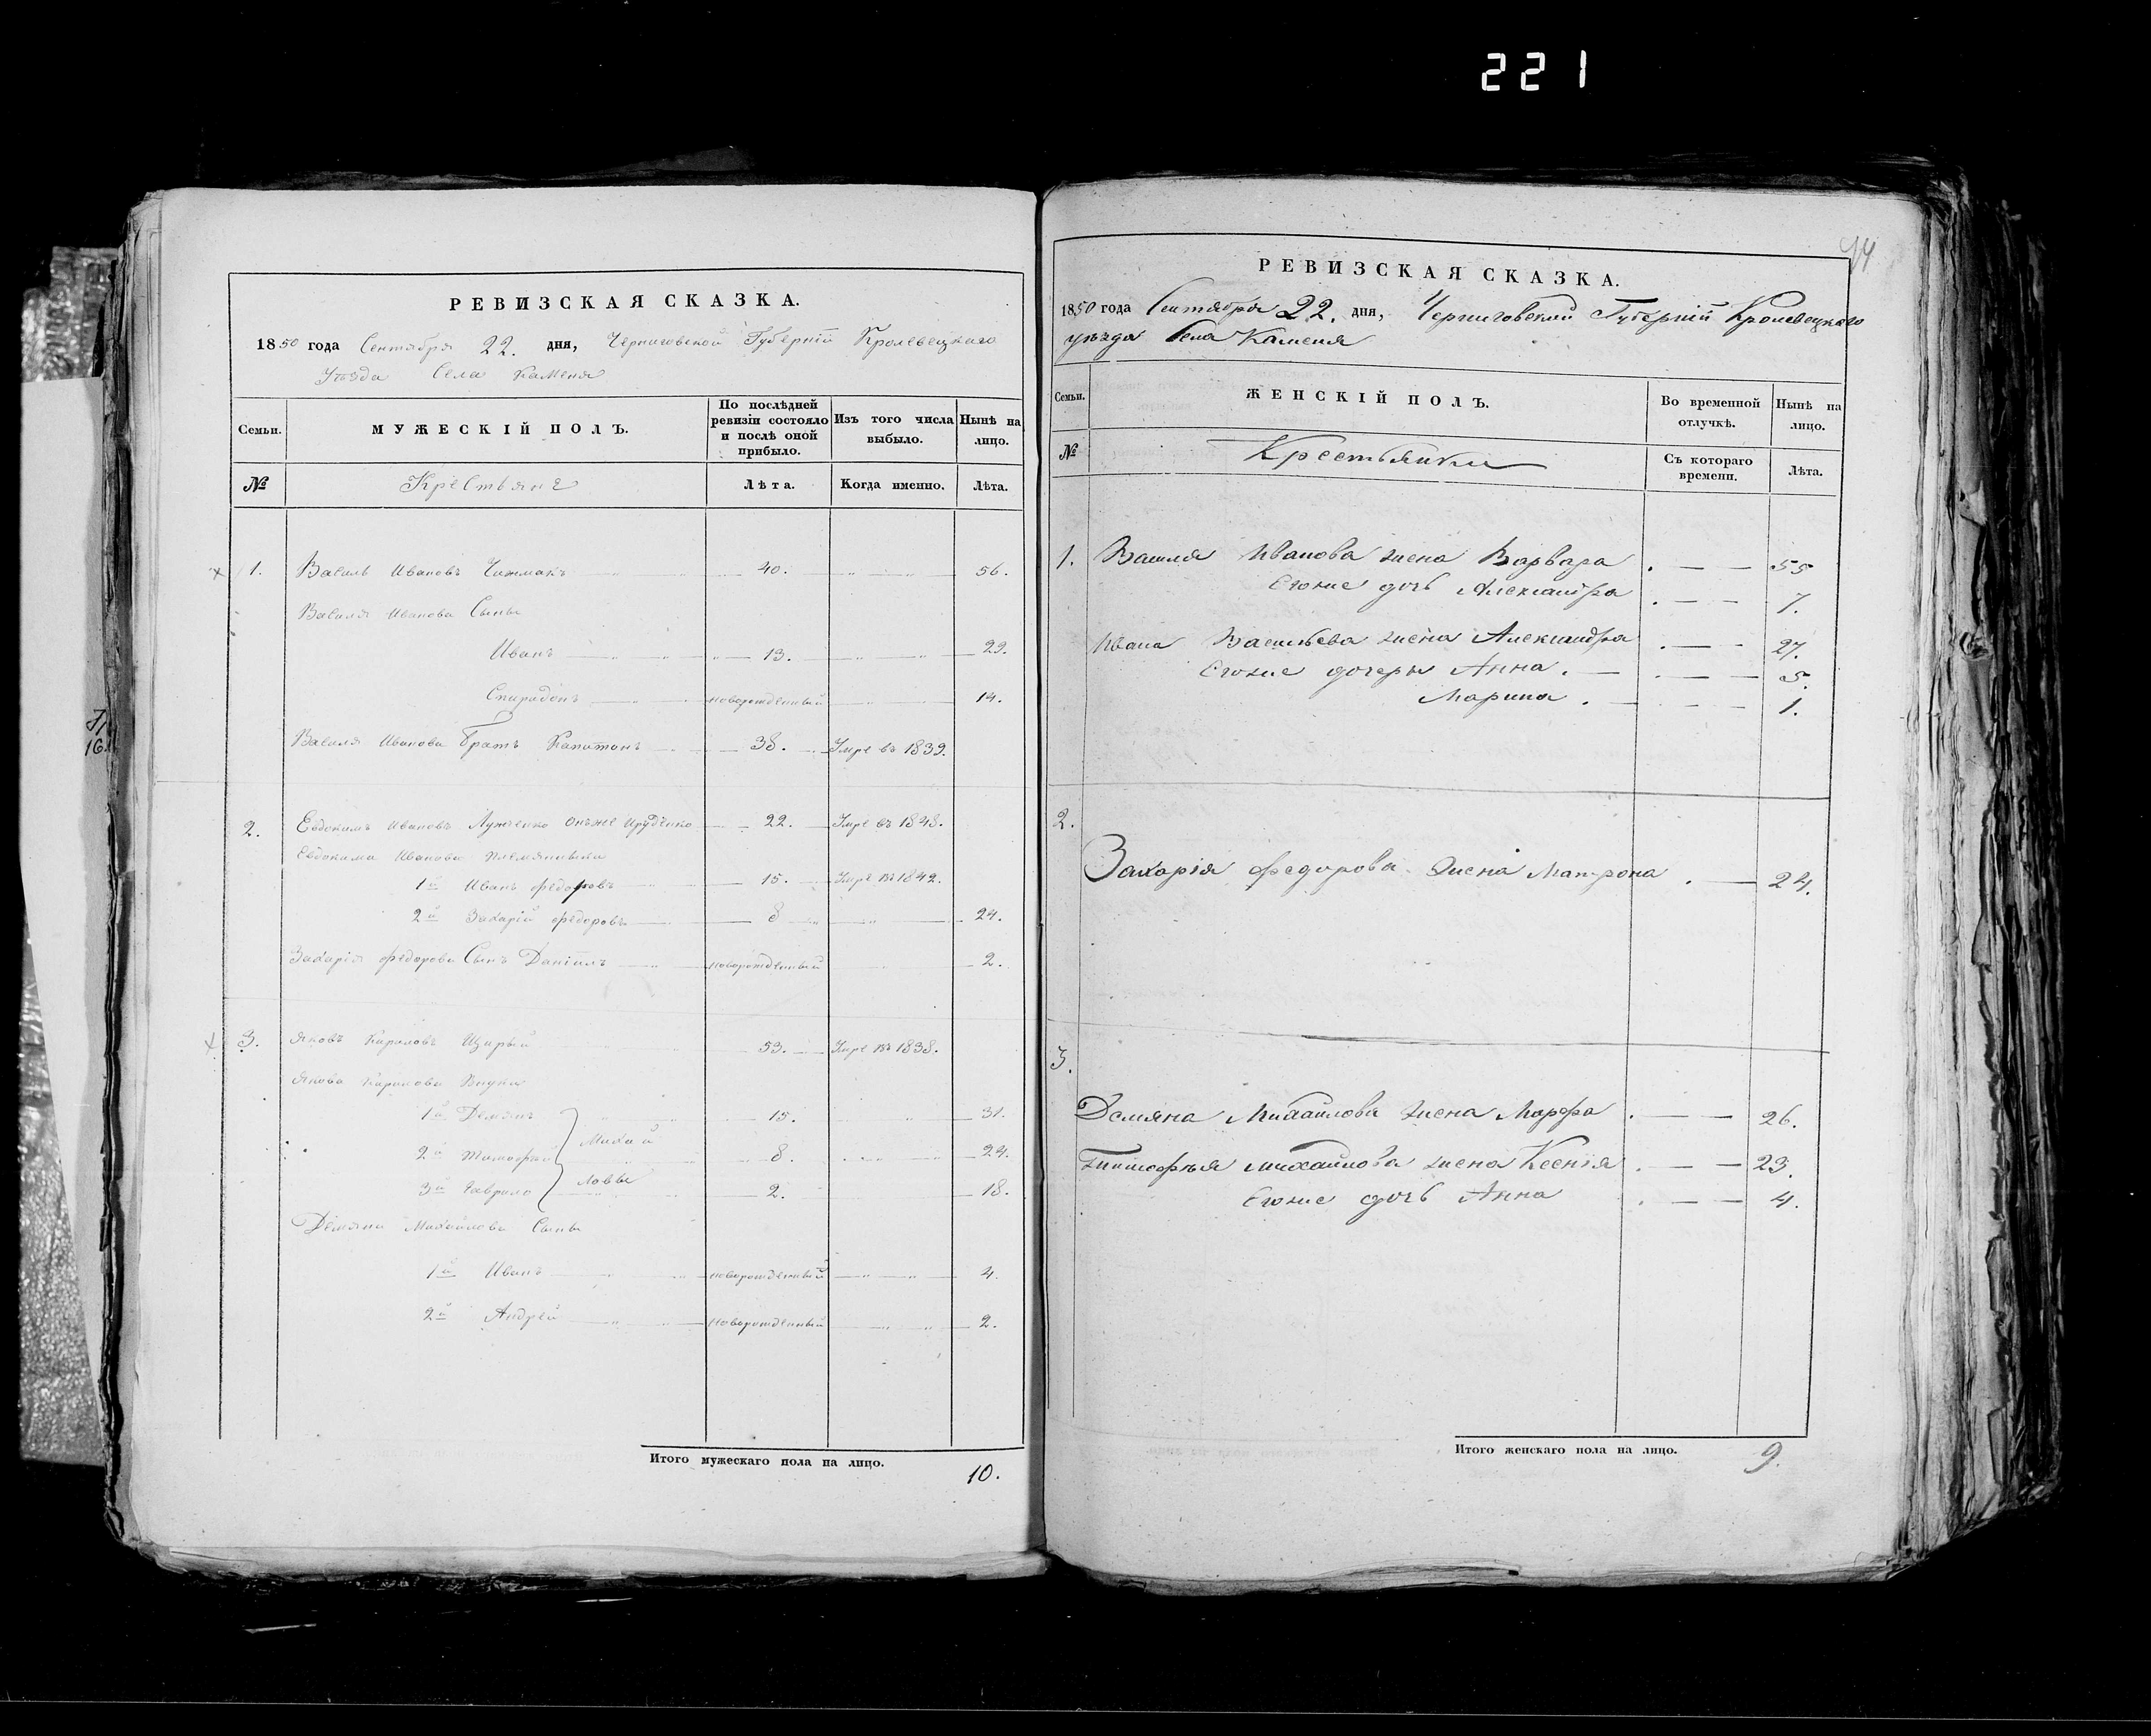 221
РЕВИЗСКАЯ СКАЗКА.
1850 года Сентября 22. дня, Черниговской Губернiй Кролевецкаго
Уѣзда Села Каменя
Семьи. МУЖЕСКІЙ ПОЛЪ. По послѣдней ревизіи состояло и послѣ оной прибыло. Изъ того числа выбыло. Нынѣ на лицо.
№ Крестьяне Лѣта. Когда именно. Лѣта.
1. Василь Ивановъ Чижмакъ 40. 56.
Василя Иванова Сыны
Иванъ 13. 29.
Спиридонъ новорожденный 14.
Василя Иванова братъ Капитонъ 38. Умре въ 1839.
2. Евдокимъ Ивановъ онъже 22. Умре въ 1848.
Евдокима Иванова племянники
1й Иванъ Федоровъ 15. Умре въ 1842.
2й Захарій Федоровъ 8 24.
Захарія Федорова Сынъ Даніилъ новорожденный 2.
3. Яковъ Кириловъ Щирый 53. Умре въ 1838.
Якова Кирилова Внуки
1й Демянъ 15. 31.
2й Тимофей Михай 8. 24.
3й Гаврило ловы 2. 18.
Демяна Михайлова Сыны
1й Иванъ новорожденный 4.
2й Андрей новорожденный 2.
Итого мужескаго пола на лицо. 10.
94
РЕВИЗСКАЯ СКАЗКА.
1850 года Сентября 22. дня, Черниговской Губерній Кролевецкаго
уѣзда Села Каменя
Семьи. ЖЕНСКІЙ ПОЛЪ. Во временной отлучкѣ. Нынѣ на лицо.
№ Крестьянки Съ котораго времени. Лѣта.
1. Василя Иванова жена Варвара 55
Егоже дочь Александра 7.
Ивана Васильева жена Александра 27.
Егоже дочери Анна 5.
Марина 1.
2.
Захарія Федорова жена Матрона 24.
3.
Демяна Михайлова жена Марфа 26.
Тимофѣя Михайлова жена Ксенія 23.
Егоже дочь Анна 4.
Итого женскаго пола на лицо. 9.